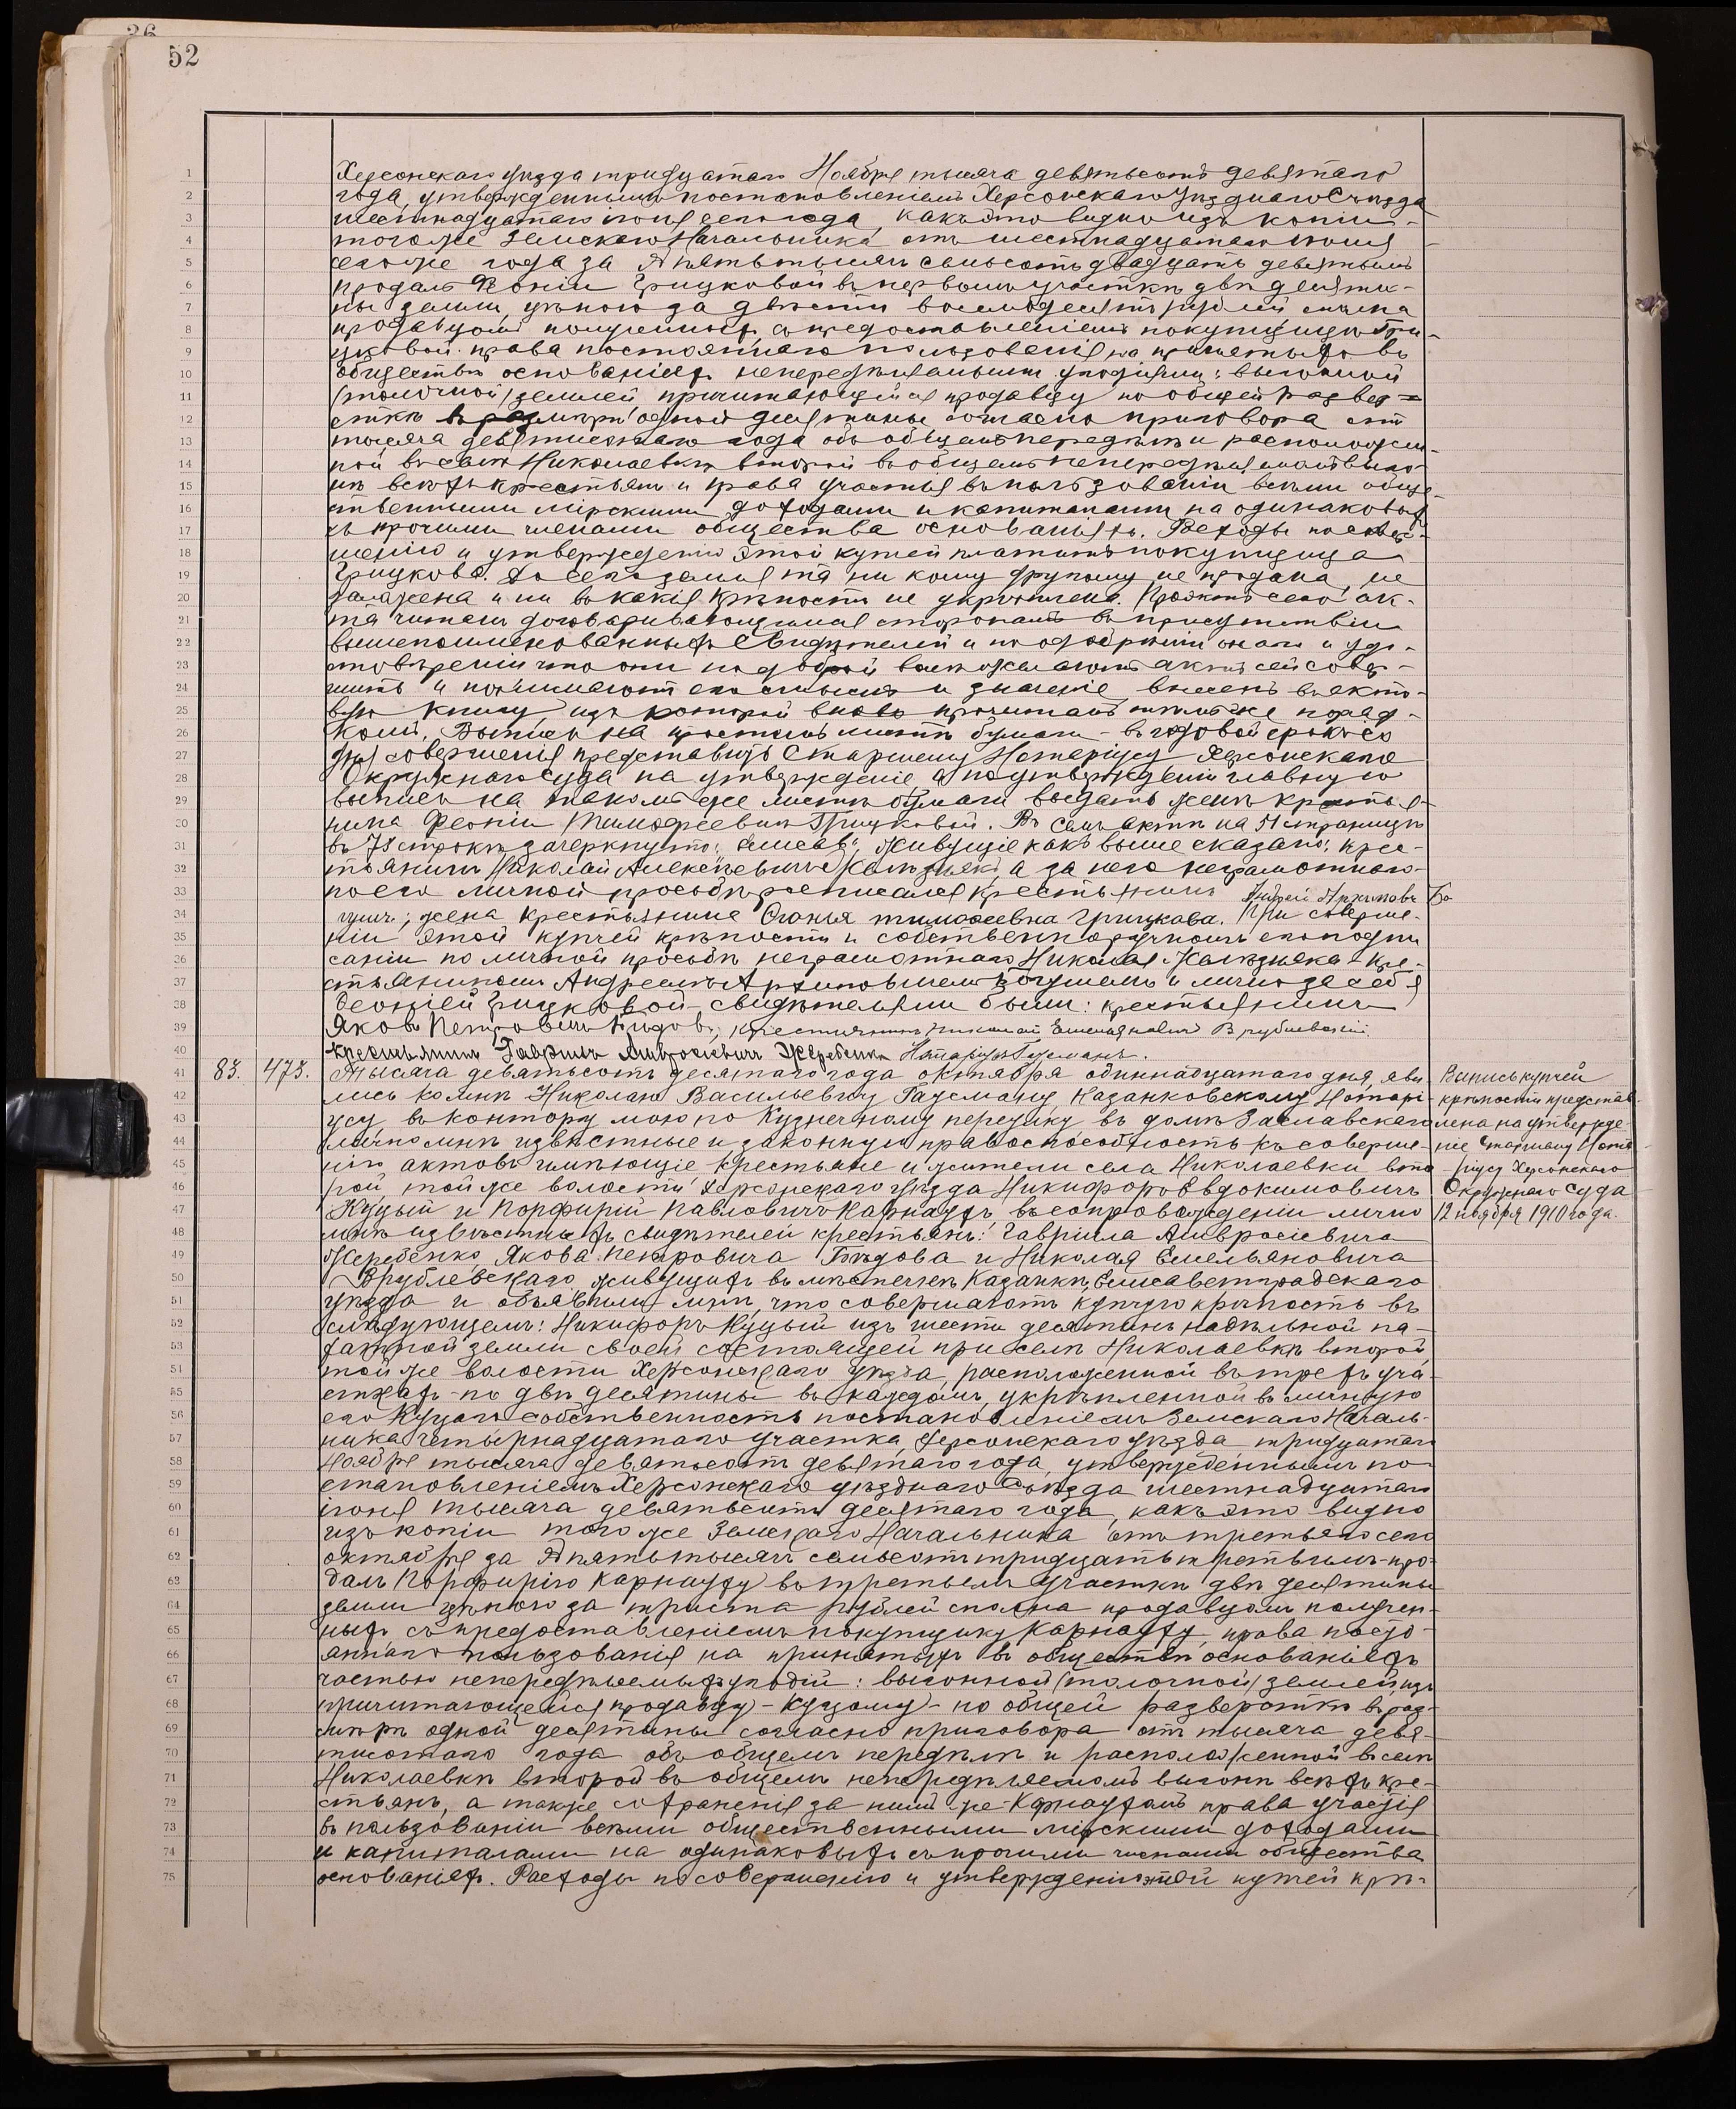 52
Херсонскаго уѣзда тридцатаго Ноября тысяча девятьсотъ девятаго
года, утвержденнымъ постановленіемъ Херсонскаго Уѣзднаго Съѣзда
шестнадцатаго іюня сего года, какъ это видно изъ копіи
того же Земскаго Начальника отъ шестнадцатаго іюня
сего же года за № пять тысячъ семьсотъ двадцать девятымъ
продалъ Феоніи Грицковой въ первомъ участкѣ двѣ десяти-
ны земли, цѣною за двѣсти восемьдесятъ рублей сполна
продавцомъ полученныхъ, съ предоставленіемъ покупщицѣ Гри-
цковой права постояннаго пользованія на принятыхъ въ
обществѣ основаніяхъ непередѣляемыми угодьями: выгонной
(толочной) землей причитающейся продавцу по общей развер-
сткѣ въ размѣрѣ одной десятины согласно приговора отъ
тысяча девятисотаго года объ общемъ передѣлѣ и расположен-
ной въ селѣ Николаевкѣ второй въ общемъ непередѣляемомъ выго-
нѣ всѣхъ крестьянъ и права участія въ пользованіи всѣми обще-
ственными мірскими доходами и капиталами на одинаковыхъ
съ прочими членами общества основаніяхъ. Расходы по совер-
шенію и утвержденію этой купчей платитъ покупщица
Грицкова. До сего земля та ни кому другому не продана, не
заложена и ни въ какія крѣпости не укрѣплена. Проектъ сего ак-
та читанъ договаривающимся сторонамъ въ присутствіи
вышепоименованныхъ свидѣтелей и по одобреніи онаго и удо-
стовѣреніи что они по доброй волѣ желаютъ актъ сей совер-
шить и понимаютъ его смыслъ и значеніе, внесенъ въ акто-
вую книгу, изъ которой вновь прочитанъ тѣмъ же поряд-
комъ. Выпись на простомъ листѣ бумаги въ годовой срокъ со
дня совершенія представить Старшему Нотаріусу Херсонскаго
Окружнаго Суда на утвержденіе, а по утвержденіи главную
выпись на такомъ же листѣ бумаги выдать женѣ крестья-
нина Феоніи Тимофеевнѣ Грицковой. Въ семъ актѣ на 51 страницѣ
въ 78 строкѣ зачеркнуто: живущіе какъ выше сказано: крес-
тьянинъ Николай Алексѣевичъ а за него неграмотнаго
по его личной просьбѣ росписался крестьянинъ Андрей Архиповъ Бо
гушъ; жена крестьянина Огонья Тимофеевна Грицкова. При соверше-
ніи этой купчей крѣпости и собственноручномъ его подпи
саніи по личной просьбѣ неграмотнаго Николая кре-
стьяниномъ Андреемъ Архиповымъ Богушемъ и лично за себя
Феоніей Грицковой, свидѣтелями были: крестьянинъ
Яковъ Петровичъ Бѣдовъ, крестьянинъ Николай Емельяновичъ Врублевскій
крестьянинъ Гавріилъ Амвросіевичъ Жеребенко Нотаріусъ Гаусманъ.
83. 473. Тысяча девятьсотъ десятаго года октября одиннадцатаго дня, яви
лись ко мнѣ Николаю Васильевичу Гаусману Казанковскому Нотарі-
усу въ контору мою по Кузнечному переулку въ домѣ Заславскаго
лично мнѣ извѣстные и законную правоспособность къ соверше-
нію актовъ имѣющіе крестьяне и жители села Николаевки вто
рой, той же волости Херсонскаго уѣзда Никифоръ Евдокимовичъ
Куцый и Порфирій Павловичъ Карнаухъ, въ сопровожденіи лично
мнѣ извѣстныхъ свидѣтелей крестьянъ: Гавріила Амвросіевича
Жеребенко, Якова Петровича Бѣдова и Николая Емельяновича
Врублевскаго живущихъ въ мѣстечкѣ Казанкѣ, Елисаветградскаго
уѣзда и объявили мнѣ, что совершаютъ купчую крѣпость въ
слѣдующемъ: Никифоръ Куцый изъ шести десятинъ надѣльной па-
хатной земли своей состоящей при селѣ Николаевкѣ второй,
той же волости Херсонскаго уѣзда, расположенной въ трехъ уча-
сткахъ по двѣ десятины въ каждомъ, укрѣпленной въ личную
его Куцаго собственность постановленіемъ Земскаго Началь-
ника четырнадцатаго участка, Херсонскаго уѣзда, тридцатаго
Ноября тысяча девятьсотъ девятаго года, утвержденнымъ по-
становленіемъ Херсонскаго уѣзднаго Съѣзда шестнадцатаго
іюня тысяча девятьсотъ десятаго года, какъ это видно
изъ копіи того же Земскаго Начальника отъ третьяго сего
октября за № пять тысячъ семьсотъ тридцать третьимъ - про-
далъ Порфирію Карнауху въ третьемъ участкѣ двѣ десятины
земли цѣною за триста рублей сполна продавцомъ получен-
ныхъ, съ предоставленіемъ покупщику Карнауху права посто-
яннаго пользованія на принятыхъ въ обществѣ основаніяхъ
частью непередѣляемыхъ угодій: выгонной (толочной) землей, изъ
причитающейся продавцу - Куцому - по общей разверсткѣ въ раз-
мѣрѣ одной десятины согласно приговора отъ тысяча девя-
тисотаго года объ общемъ передѣлѣ и расположенной въ селѣ
Николаевкѣ второй въ общемъ непередѣляемомъ выгонѣ всѣхъ кре-
стьянъ, а также сохраненія за нимъ же - Карнаухомъ права участія
въ пользованіи всѣми общественными мірскими доходами
и капиталами на одинаковыхъ съ прочими членами общества
основаніяхъ. Расходы по совершенію и утвержденію этой купчей крѣ-
Выпись купчей
крѣпости представ-
лена на утвержде-
ніе Старшему Нота
ріусу Херсонскаго
Окружнаго Суда
12 ноября 1910 года.